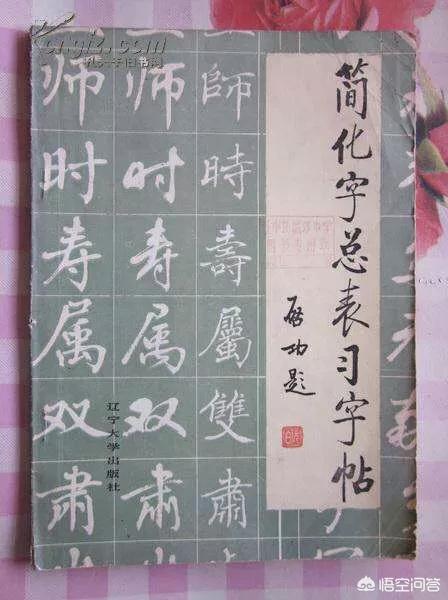 简化字总表习字帖
启功题
师 师 師
时 时 時
寿 寿 壽
属 属 屬
双 双 雙
肃 肃 肅
辽宁大学出版社
悟空问答